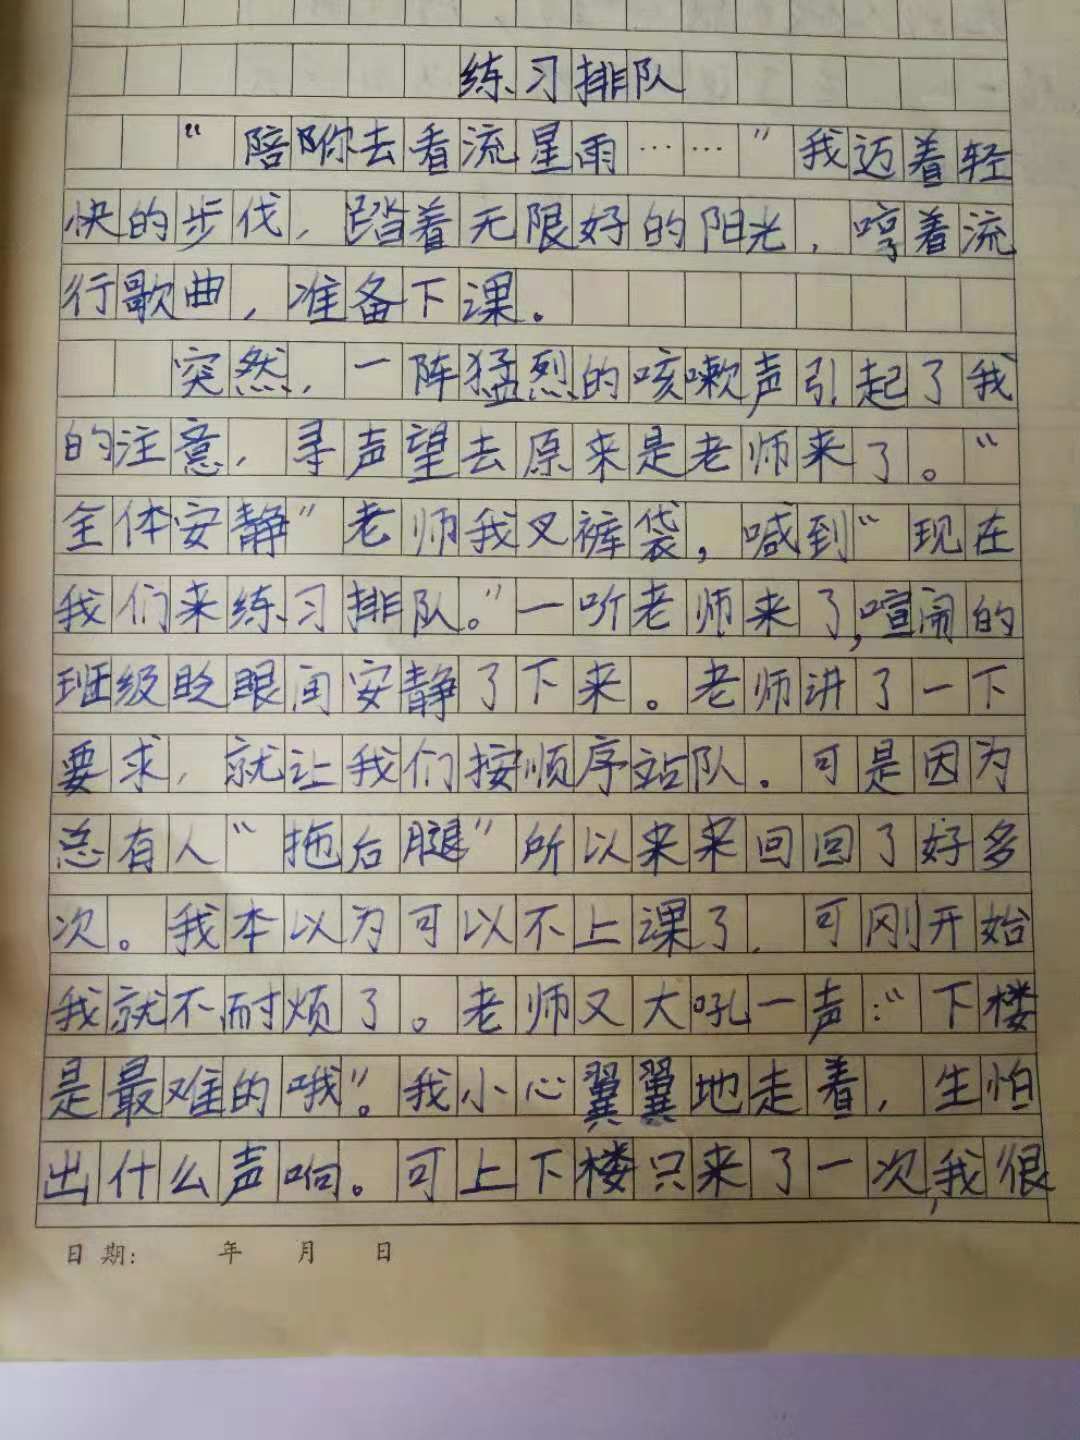 练习排队
“陪你去看流星雨……”我迈着轻
快的步伐，踏着无限好的阳光，哼着流
行歌曲，准备下课。
突然，一阵猛烈的咳嗽声引起了我
的注意，寻声望去原来是老师来了。“
全体安静”老师我叉裤袋，喊到“现在
我们来练习排队。”一听老师来了，喧闹的
班级眨眼间安静了下来。老师讲了一下
要求，就让我们按顺序站队。可是因为
总有人“拖后腿”所以来来回回了好多
次。我本以为可以不上课了，可刚开始
我就不耐烦了。老师又大吼一声：“下楼
是最难的哦”。我小心翼翼地走着，生怕
出什么声响。可上下楼只来了一次，我很
日期： 年 月 日